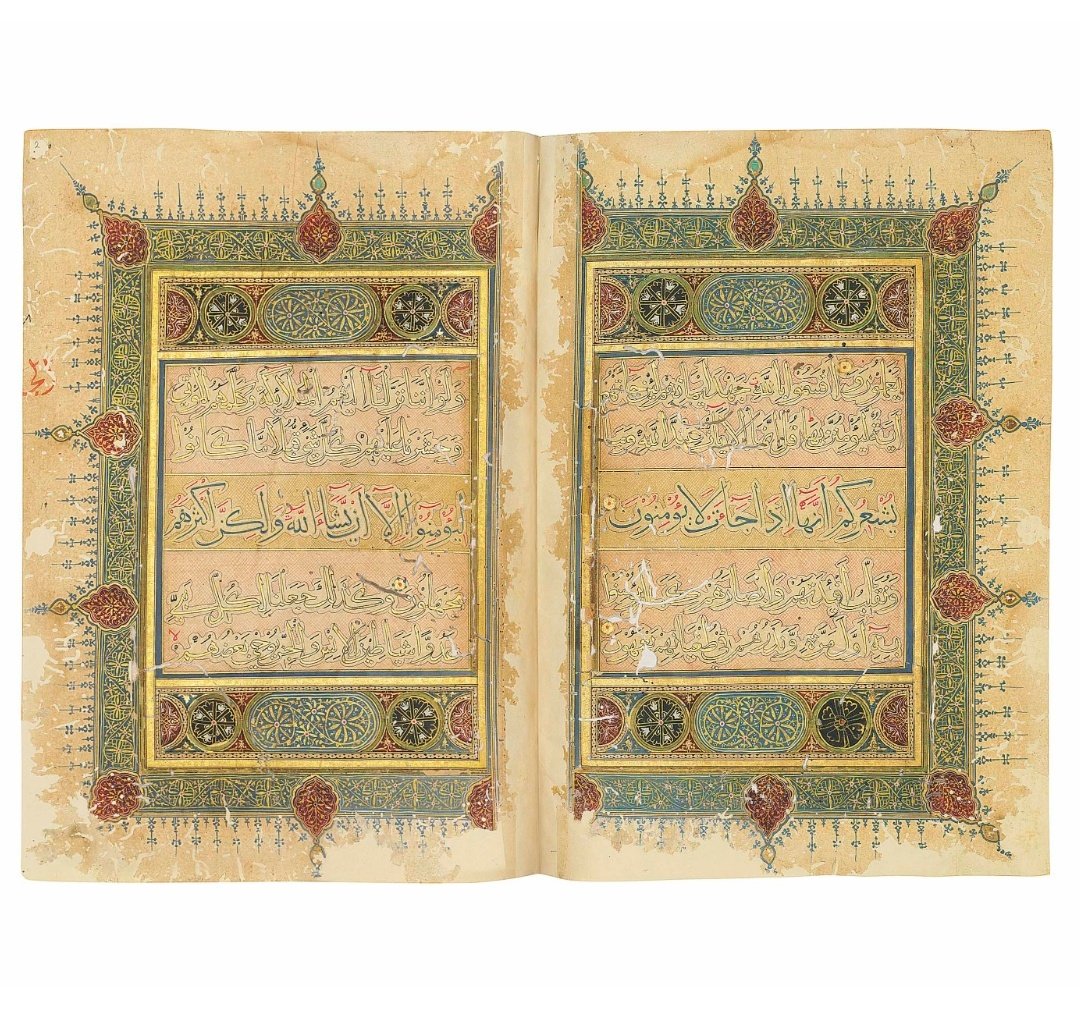 يعملون واقسموا بالله جهد ايمانهم لئن جاءتهم
اية ليؤمنن بها قل انما الايات عند الله وما
يشعركم انها اذا جاءت لا يؤمنون
ونقلب افئدتهم وابصارهم كما لم يؤمنوا
به اول مرة ونذرهم في طغيانهم يعمهون
2
ولو اننا نزلنا اليهم الملائكة وكلمهم الموتى
وحشرنا عليهم كل شيء قبلا ما كانوا
ليؤمنوا الا ان يشاء الله ولكن اكثرهم
يجهلون وكذلك جعلنا لكل نبي
عدوا شياطين الانس والجن يوحي بعضهم